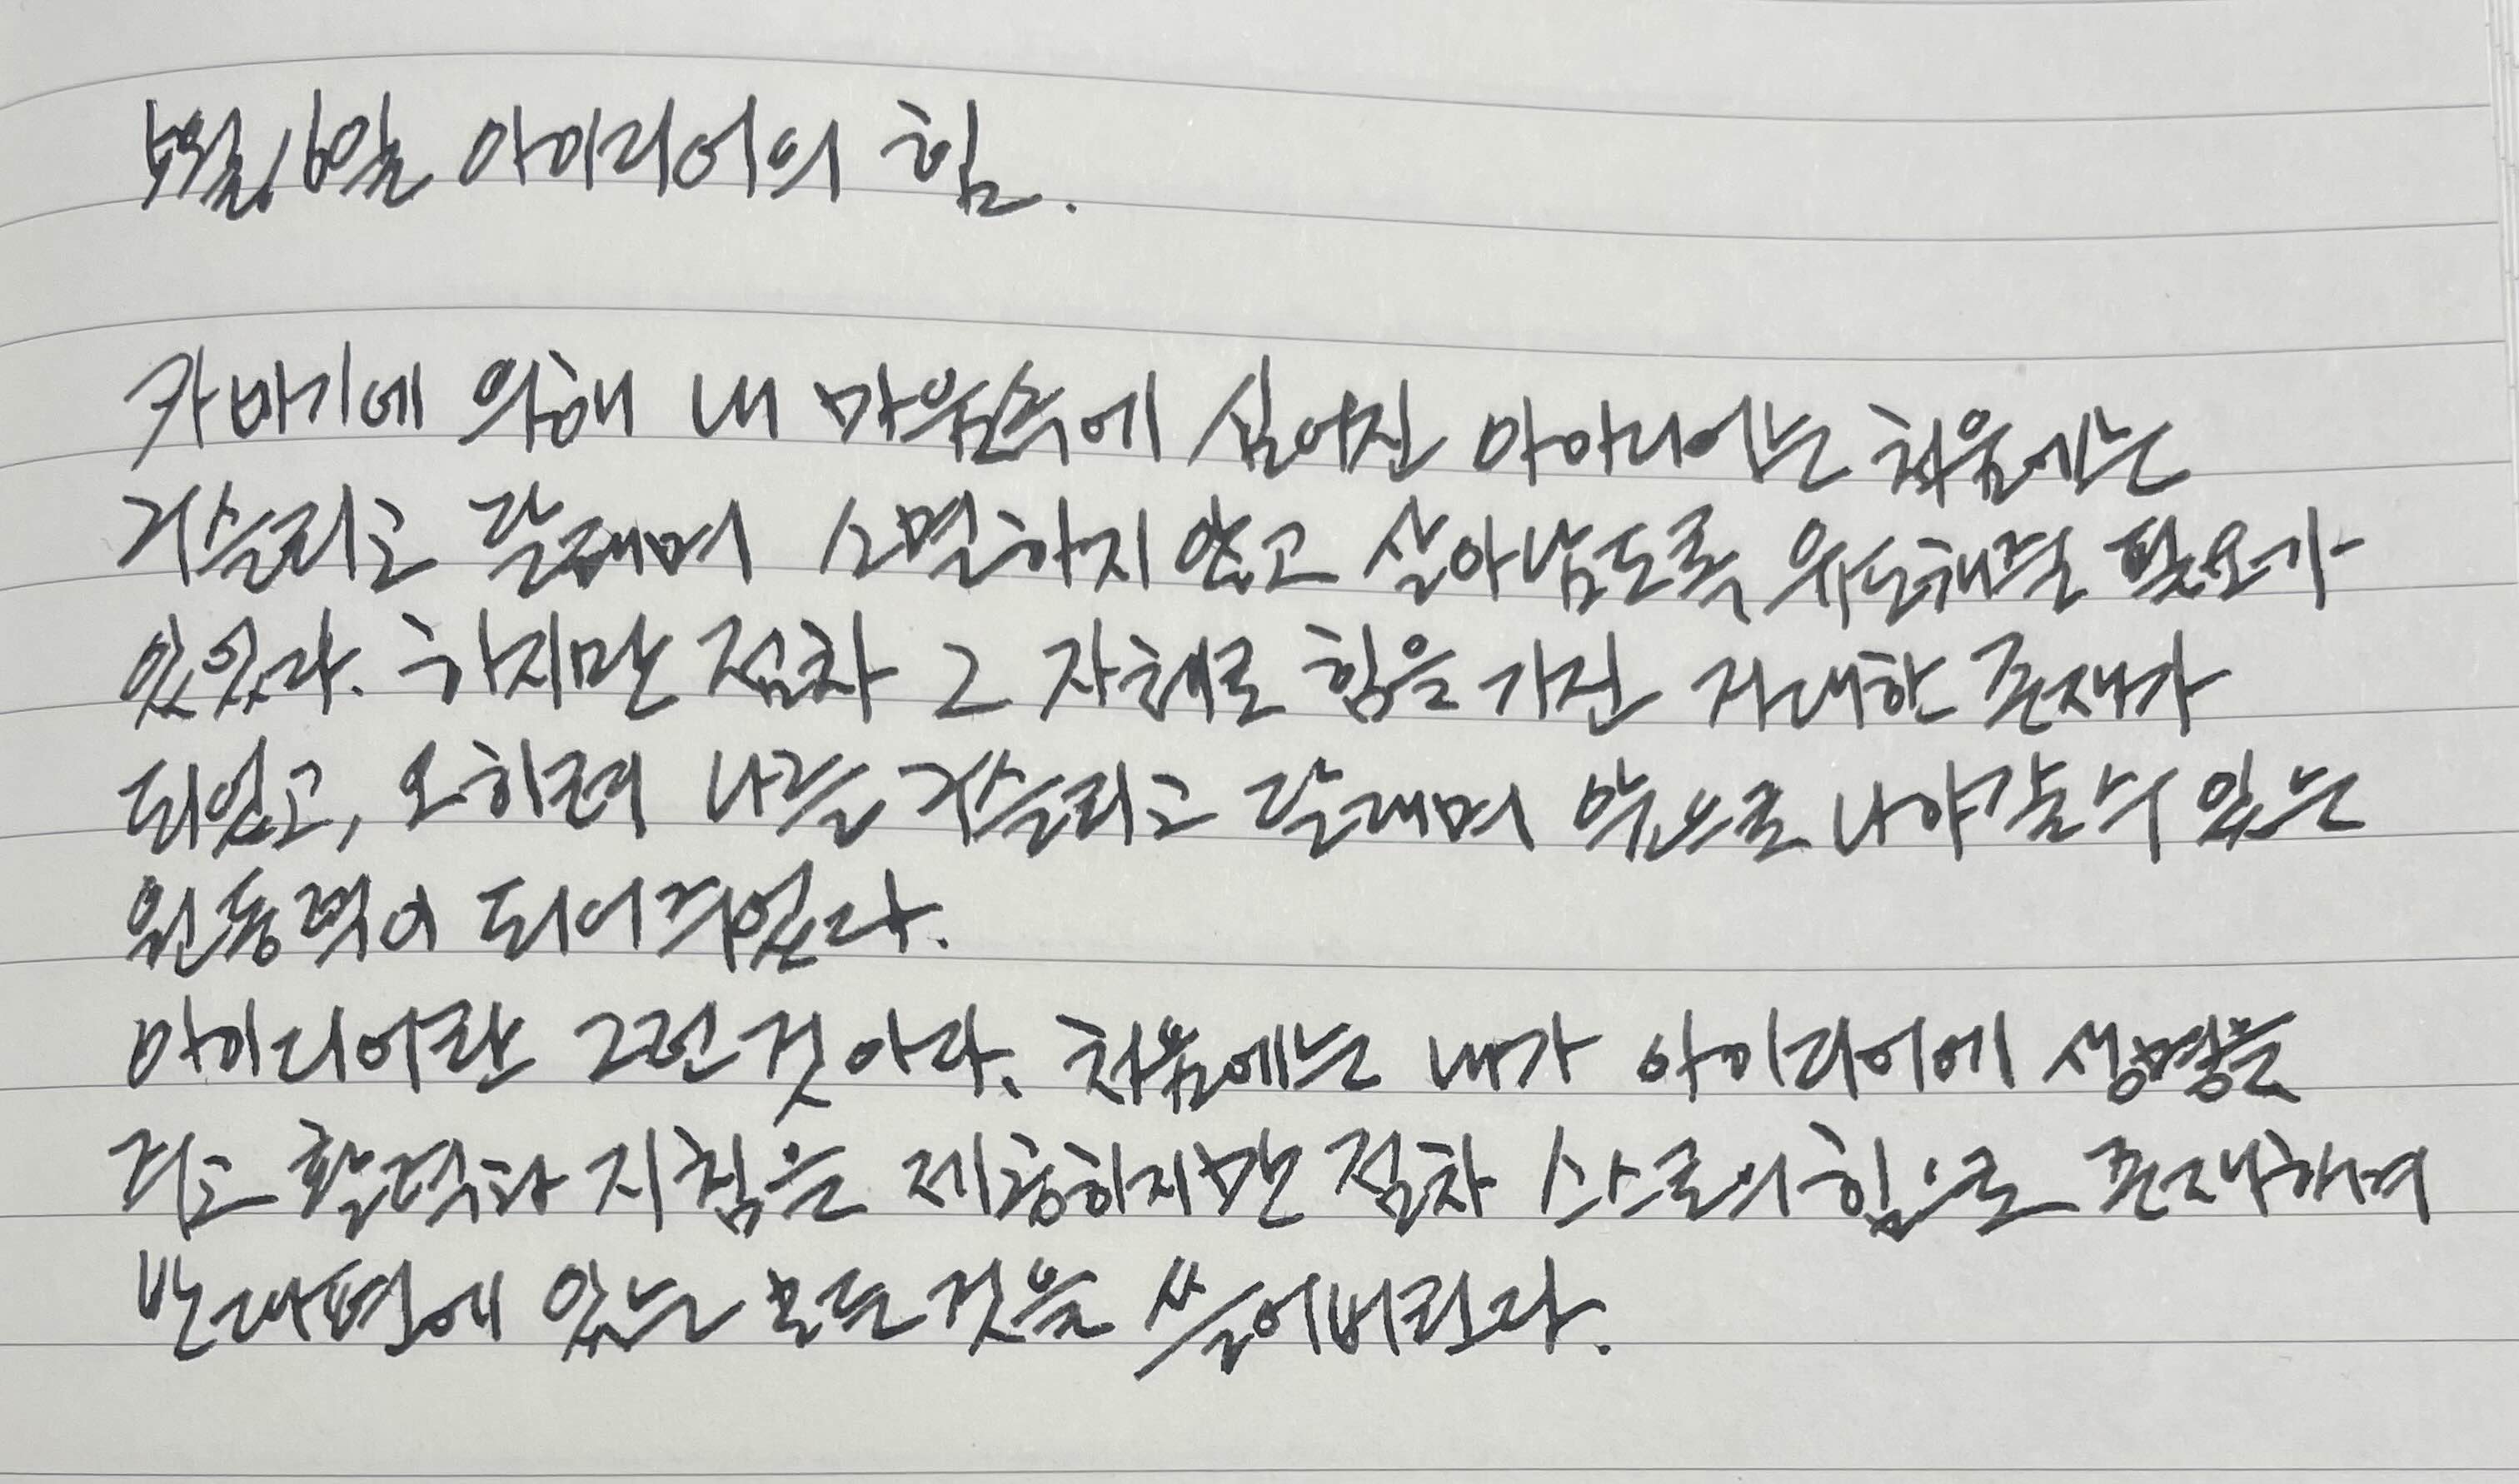 5월 16일 아이디어의 힘.
카바기에 의해 내 마음속에 심어진 아이디어는 처음에는
거슬리고 달래며 소멸하지 않고 살아남도록 유도해줄 필요가
있었다. 하지만 점차 그 자체로 힘을 가진 거대한 존재가
되었고, 오히려 나를 거슬리고 달래며 앞으로 나아갈 수 있는
원동력이 되어주었다.
아이디어란 그런 것이다. 처음에는 내가 아이디어에 생명을
주고 활력과 지침을 제공하지만 점차 스스로의 힘으로 존재하며
반대편에 있는 모든 것을 쓸어버린다.